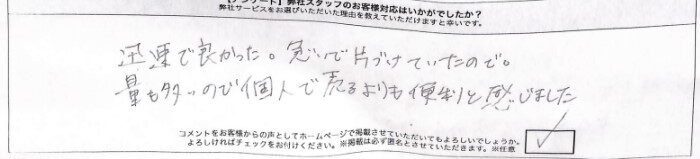 【アンケート】弊社スタッフのお客様対応はいかがでしたか？
弊社サービスをお選びいただいた理由を教えていただけますと幸いです。
迅速で良かった。急いで片づけていたので。
量も多いので個人で売るよりも便利と感じました
コメントをお客様からの声としてホームページで掲載させていただいてもよろしいでしょうか。
よろしければチェックをお付けください。※掲載は必ず匿名とさせていただきます。※任意